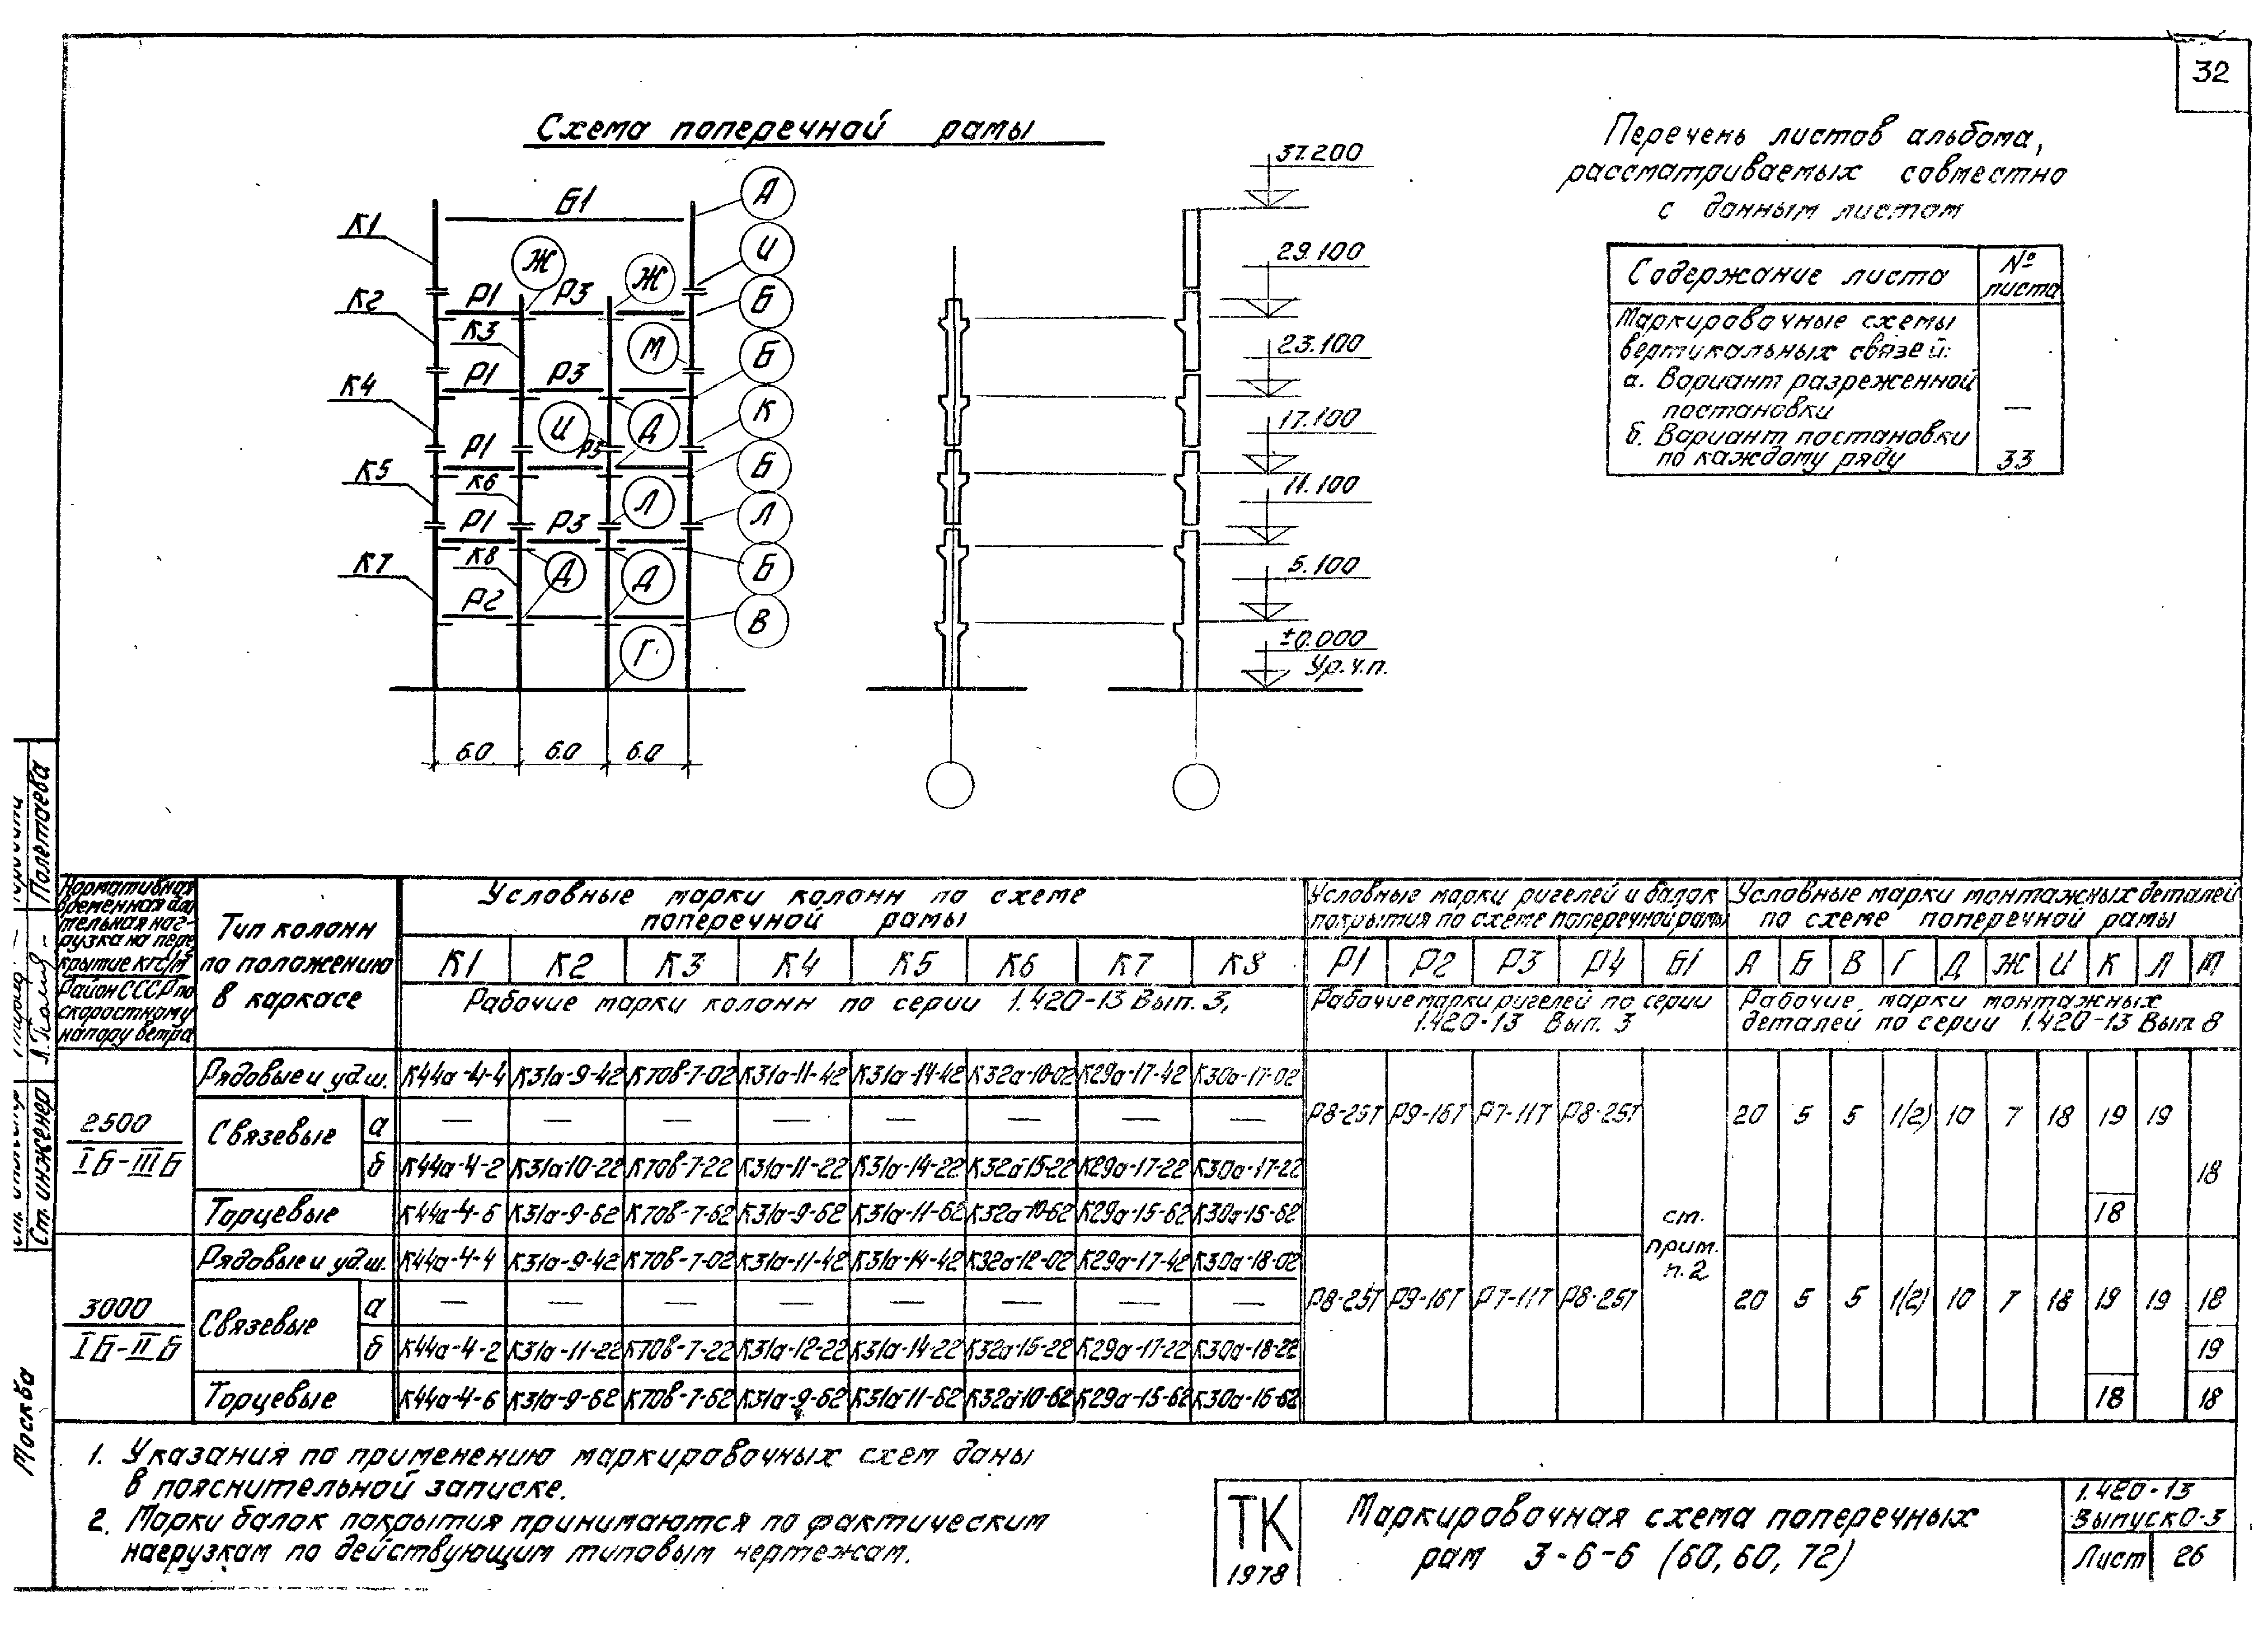 32
Схема поперечной рамы
Б1
К1
К2
К3
К4
К5
К6
К7
К8
Р1
Р3
Р1
Р3
Р1
Р3
Р1
Р3
Р2
Ж
Ж
М
И
Д
Л
Д
Д
Г
А
И
Б
Б
К
Б
Л
Б
В
6.0 6.0 6.0
37.200
29.100
23.100
17.100
11.100
5.100
±0.000
Ур.ч.п.
Перечень листов альбома,
рассматриваемых совместно
с данным листом
Содержание листа № листа
Маркировочные схемы
вертикальных связей:
а. Вариант разреженной
постановки —
б. Вариант постановки
по каждому ряду 33
Полетаева
Ст. инженер
Москва
Нормативная
временная дли
тельная наг-
рузка на пере
крытие кгс/м²
Район СССР по
скоростному
напору ветра
Тип колонн
по положению
в каркасе
Условные марки колонн по схеме
поперечной рамы
К1 К2 К3 К4 К5 К6 К7 К8
Рабочие марки колонн по серии 1.420-13 Вып. 3,
Условные марки ригелей и балок
покрытия по схеме поперечной рамы
Р1 Р2 Р3 Р4 Б1
Рабочие марки ригелей по серии
1.420-13 Вып. 3
Условные марки монтажных деталей
по схеме поперечной рамы
А Б В Г Д Ж И К Л М
Рабочие марки монтажных
деталей по серии 1.420-13 Вып 8
2500
IБ-IIIБ
Рядовые и уд.ш. К44а-4-4 К31а-9-42 К70в-7-02 К31а-11-42 К31а-14-42 К32а-10-02 К29а-17-42 К30а-17-02
Связевые
а — — — — — — — —
б К44а-4-2 К31а-10-22 К70в-7-22 К31а-11-22 К31а-14-22 К32а-15-22 К29а-17-22 К30а-17-22
Торцевые К44а-4-6 К31а-9-62 К70в-7-62 К31а-9-62 К31а-11-62 К32а-10-62 К29а-15-62 К30а-15-62
Р8-25Т Р9-16Т Р7-11Т Р8-25Т
20 5 5 1(2) 10 7 18 19 19
18
18
ст.
прим.
п.2
3000
IБ-IIБ
Рядовые и уд.ш. К44а-4-4 К31а-9-42 К70в-7-02 К31а-11-42 К31а-14-42 К32а-12-02 К29а-17-42 К30а-18-02
Связевые
а — — — — — — — —
б К44а-4-2 К31а-11-22 К70в-7-22 К31а-12-22 К31а-14-22 К32а-15-22 К29а-17-22 К30а-18-22
Торцевые К44а-4-6 К31а-9-62 К70в-7-62 К31а-9-62 К31а-11-62 К32а-10-62 К29а-15-62 К30а-16-62
Р8-25Т Р9-16Т Р7-11Т Р8-25Т
20 5 5 1(2) 10 7 18 19 19 18
19
18 18
1. Указания по применению маркировочных схем даны
в пояснительной записке.
2. Марки балок покрытия принимаются по фактическим
нагрузкам по действующим типовым чертежам.
ТК
1978
Маркировочная схема поперечных
рам 3-6-6 (60, 60, 72)
1.420-13
Выпуск 0-3
Лист 26